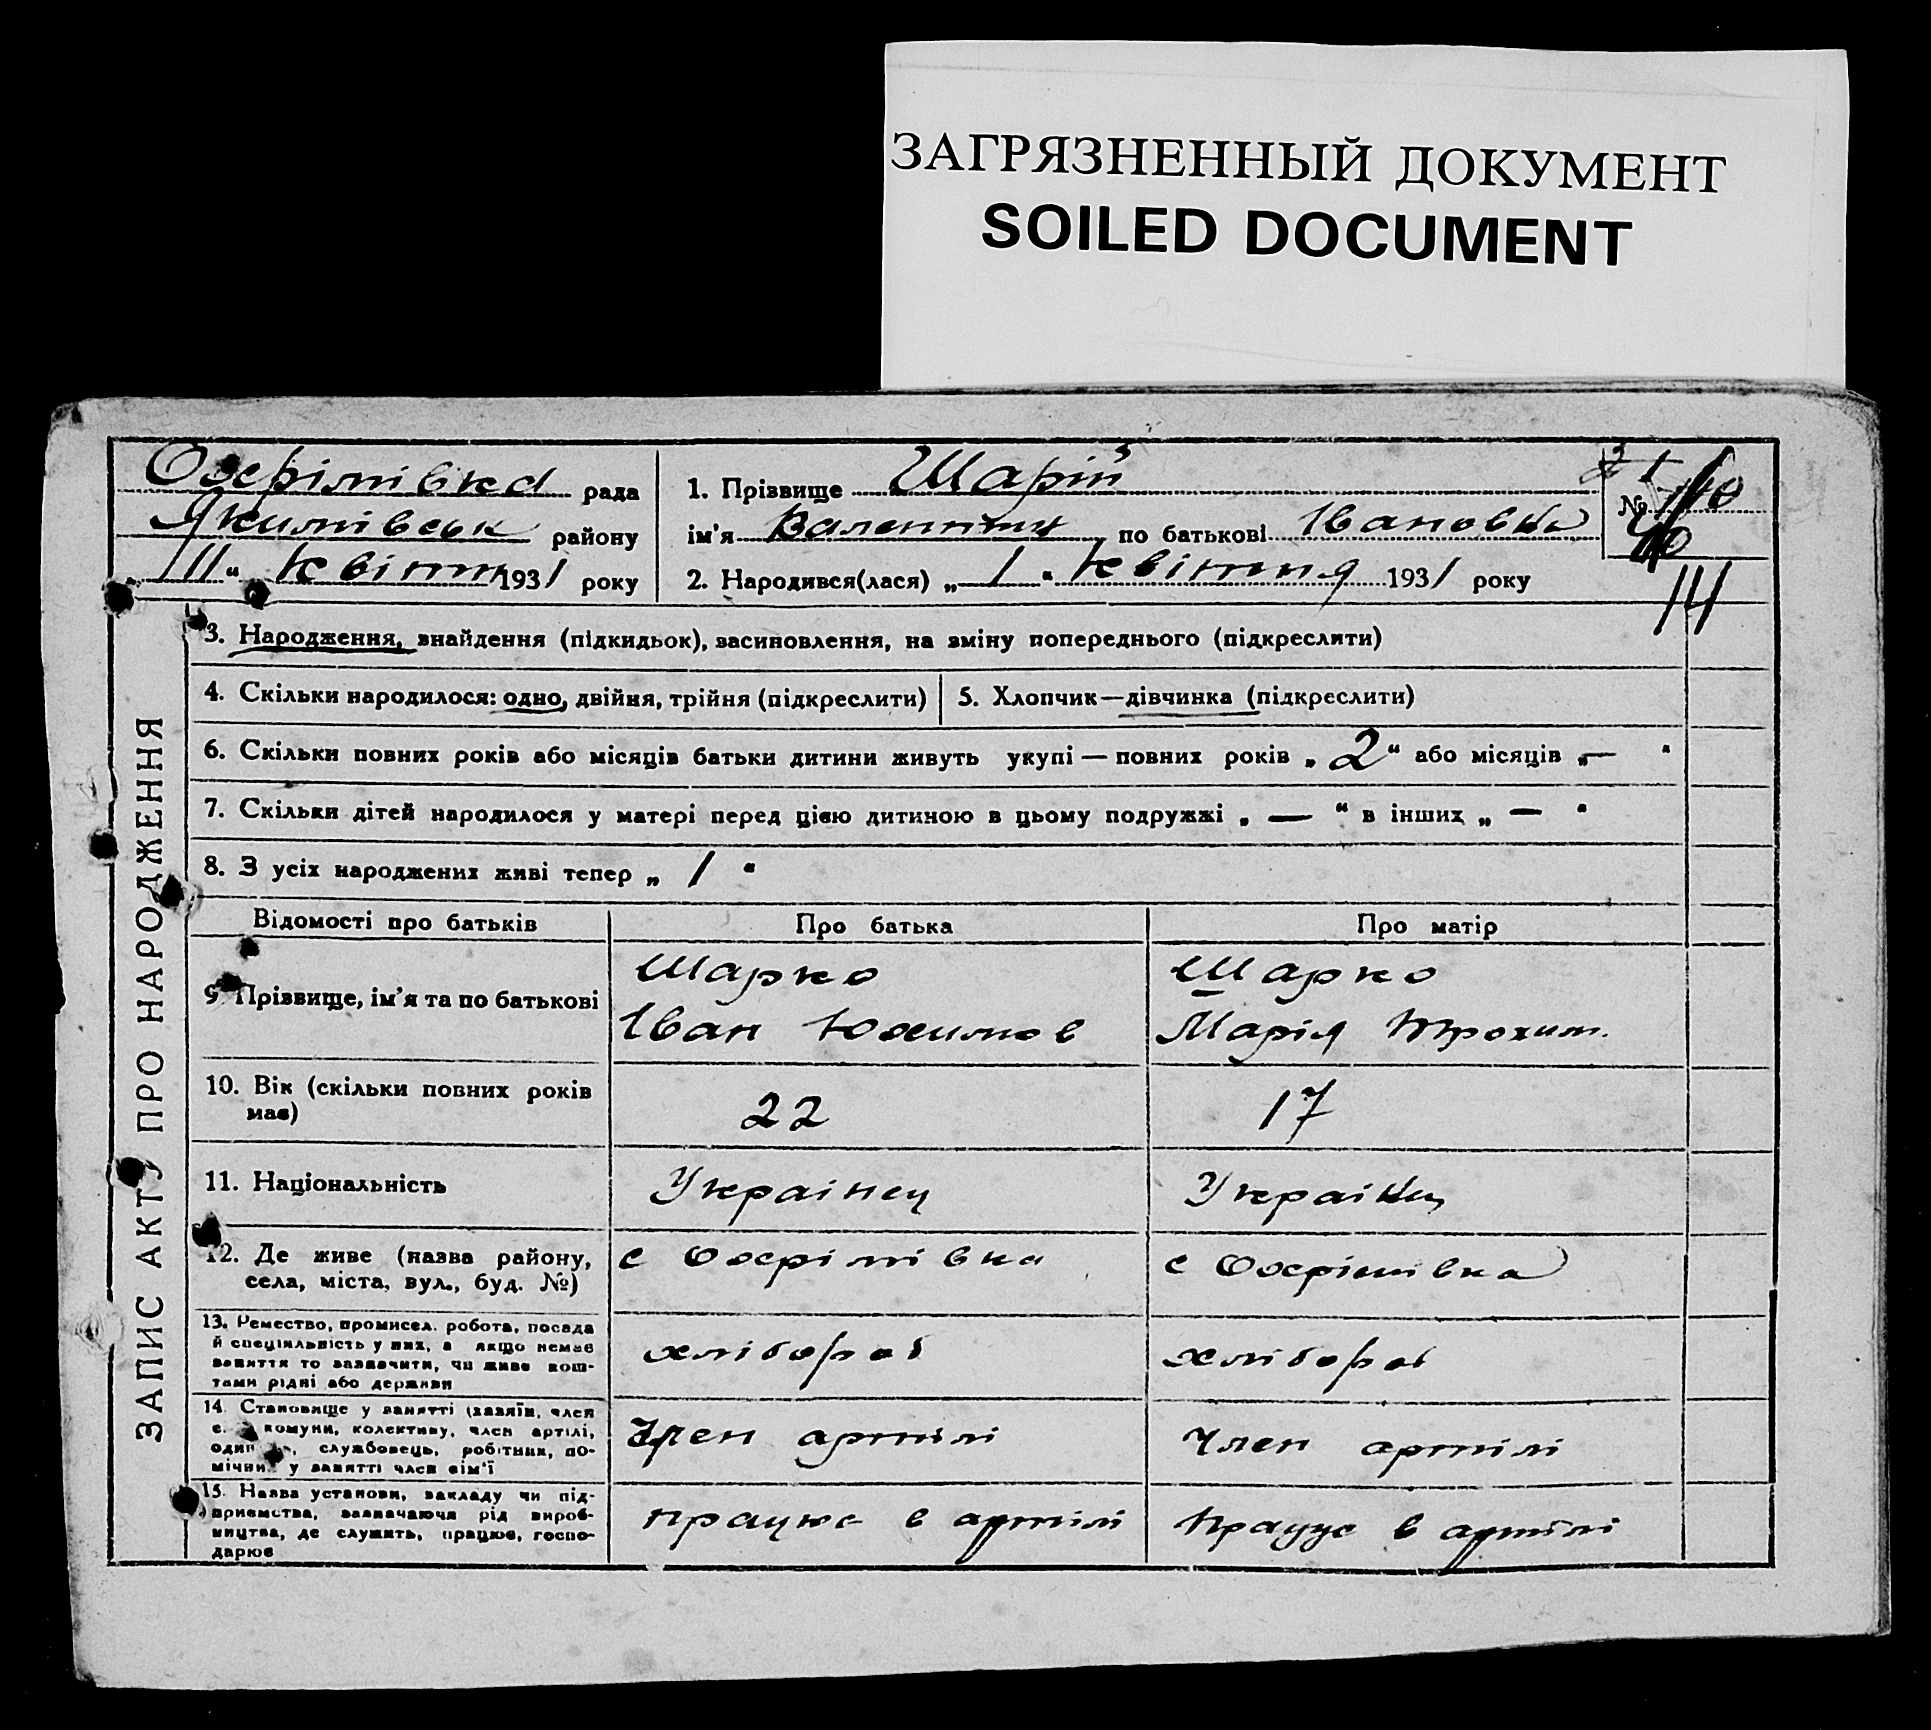 ЗАГРЯЗНЕННЫЙ ДОКУМЕНТ
SOILED DOCUMENT
Охрімівка рада
Якимівськ району
1931 року
1. Прізвище Шарій
ім'я Валентина по батькові Івановна
2. Народився(лася) „1“ квітня 1931 року
№
14
ЗАПИС АКТУ ПРО НАРОДЖЕННЯ
3. Народження, знайдення (підкидьок), засиновлення, на зміну попереднього (підкреслити)
4. Скільки народилося: одно, двійня, трійня (підкреслити)
5. Хлопчик—дівчинка (підкреслити)
6. Скільки повних років або місяців батьки дитини живуть укупі — повних років „2“ або місяців „—“
7. Скільки дітей народилося у матері перед цією дитиною в цьому подружжі „—“ в інших „—“
8. З усіх народжених живі тепер „1“
Відомості про батьків
Про батька
Про матір
9. Прізвище, ім'я та по батькові
Шарко
Іван Юхимов
Шарко
Марія Трохим.
10. Вік (скільки повних років
має)
22
17
11. Національність
Українец
Україн
12. Де живе (назва району,
села, міста, вул., буд. №)
с Охрімівка
с Охрімівка
13. Ремество, промисел. робота, посада
й спеціяльність у них, а якщо немає
заняття то зазначити, чи живе кош-
тами рідні або держави
хлібороб
хлібороб
14. Становище у занятті (хазяїн, член
с. г. комуни, колективу, член артілі,
один , службовець, робітник, по-
мічник у занятті член сім'ї
Член артілі
Член артілі
15. Назва установи, закладу чи під-
приємства, зазначаючи рід вироб-
ництва, де служить, працює, госпо-
дарює
працює в артілі
працує в артілі